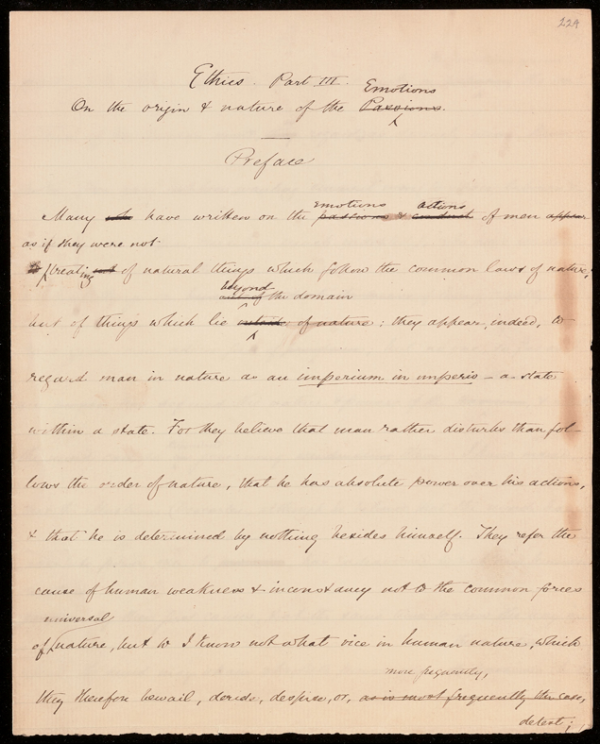 224
Ethics. Part III.
Emotions
On the origin & nature of the Passions.
Preface
emotions actions
Many who have written on the passions & conduct of men appear
as if they were not
treating of natural things which follow the common laws of nature;
beyond
out of the domain
but of things which lie outside of nature: they appear, indeed, to
regard man in nature as an imperium in imperio – a state
within a state. For they believe that man rather disturbs than fol-
lows the order of nature, that he has absolute power over his actions,
& that he is determined by nothing besides himself. They refer the
cause of human weakness & inconstancy not to the common forces
universal
of nature, but to I know not what vice in human nature, which
more frequently,
they therefore bewail, deride, despise, or, as is most frequently the case,
detest;